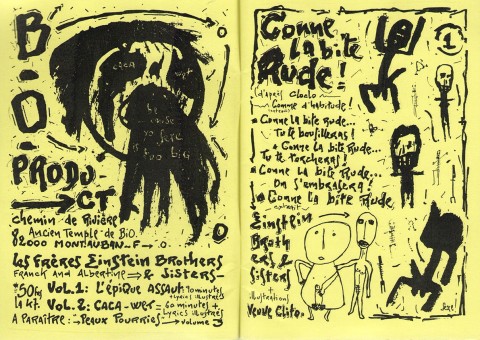 B.O.
PRODU
CT
CACA
house
so fere
is too big
chemin de Rivière
& Ancien Temple de BiO.
82000 MONTAUBAN-F→O
Les FRÈRES Einstein Brothers
Franck And Albertine → & Sisters-
50f Vol. 1: L'épique Assaut
la k7. Vol. 2: CACA-WET 60 minutes +
Lyrics illustrés
A PARAÎTRE: → Peaux Pourries → volume 3
Conne
la bite
Rude!
1
(d'après Cloclo
Comme d'habitude!
Conne la bite Rude...
Tu te bousilleras!
+ Conne la bite Rude...
Tu te torcheras!
Conne la bite Rude...
On s'embrassera!
Conne la bite Rude
Einstein
Broth
ers &
sisters
+
illustrations
Veuve Clito.